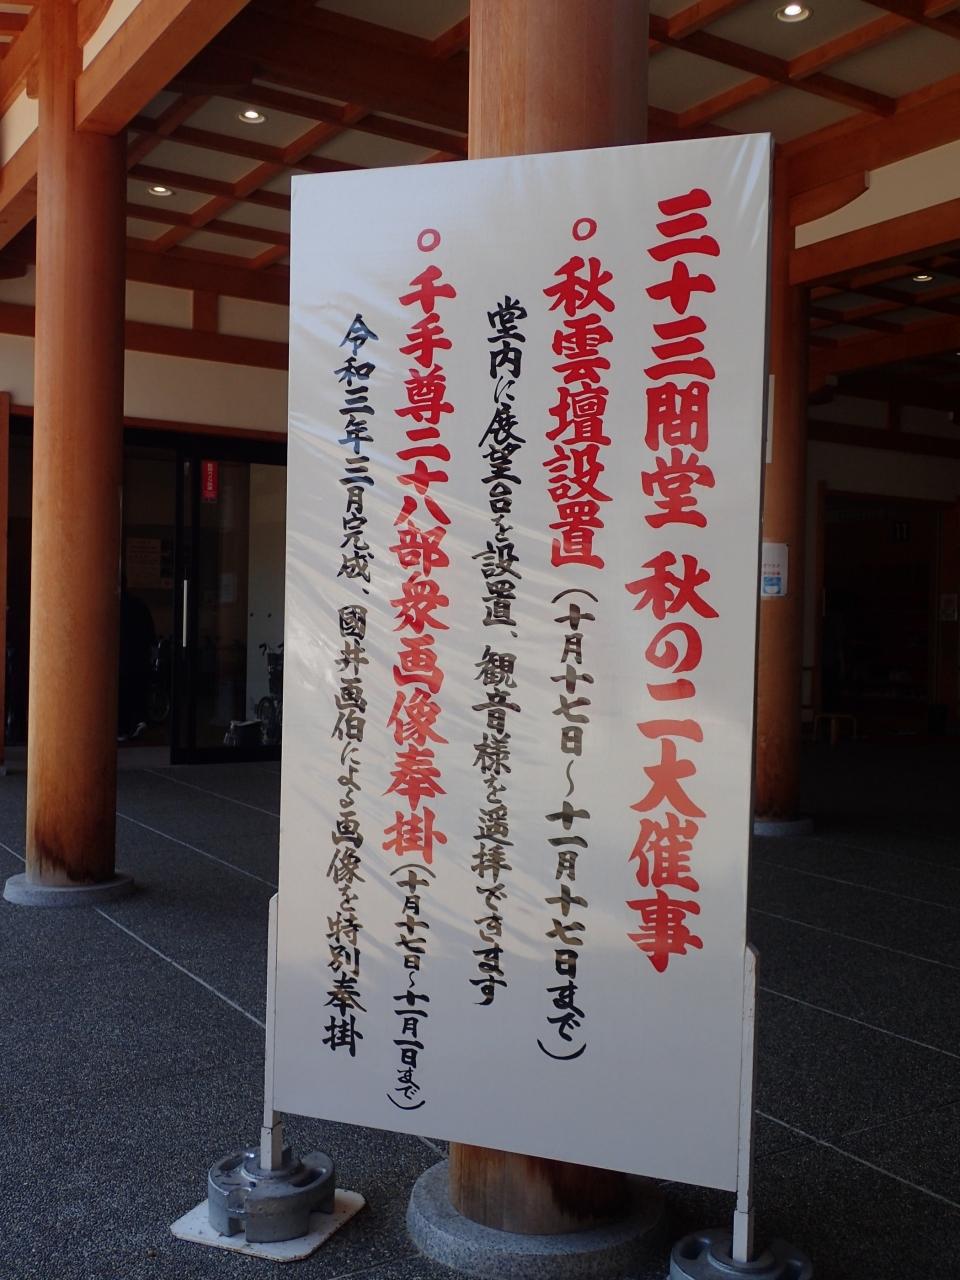 三十三間堂 秋の二大催事
○秋雲壇設置（十月十七日～十一月十七日まで）
堂内に展望台を設置、観音様を遥拝できます
○千手尊二十八部衆画像奉掛（十月十七日～十一月一日まで）
令和三年三月完成、國井画伯による画像を特別奉掛